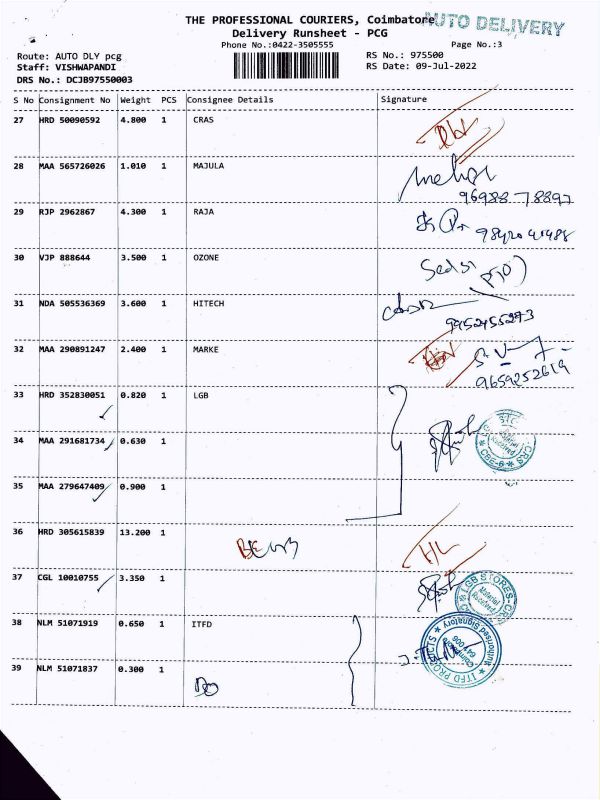 THE PROFESSIONAL COURIERS, Coimbatore
AUTO DELIVERY
Delivery Runsheet - PCG
Phone No.:0422-3505555
Page No.:3
Route: AUTO DLY pcg
RS No.: 975500
Staff: VISHWAPANDI
RS Date: 09-Jul-2022
DRS No.: DCJB97550003
S No Consignment No Weight PCS Consignee Details Signature
27 HRD 50090592 4.800 1 CRAS
28 MAA 565726026 1.010 1 MAJULA
96988 78897
29 RJP 2962867 4.300 1 RAJA
30 VJP 888644 3.500 1 OZONE
31 NDA 505536369 3.600 1 HITECH
9952455273
32 MAA 290891247 2.400 1 MARKE
9659252619
33 HRD 352830051 0.820 1 LGB
34 MAA 291681734 0.630 1
Material Received
CBE-6
35 MAA 279647409 0.900 1
36 HRD 305615839 13.200 1
37 CGL 10010755 3.350 1
LGB STORES-CRS
Material Received
38 NLM 51071919 0.650 1 ITFD
ITFD PRODUCTS
Authorised Signatory
39 NLM 51071837 0.300 1
Do